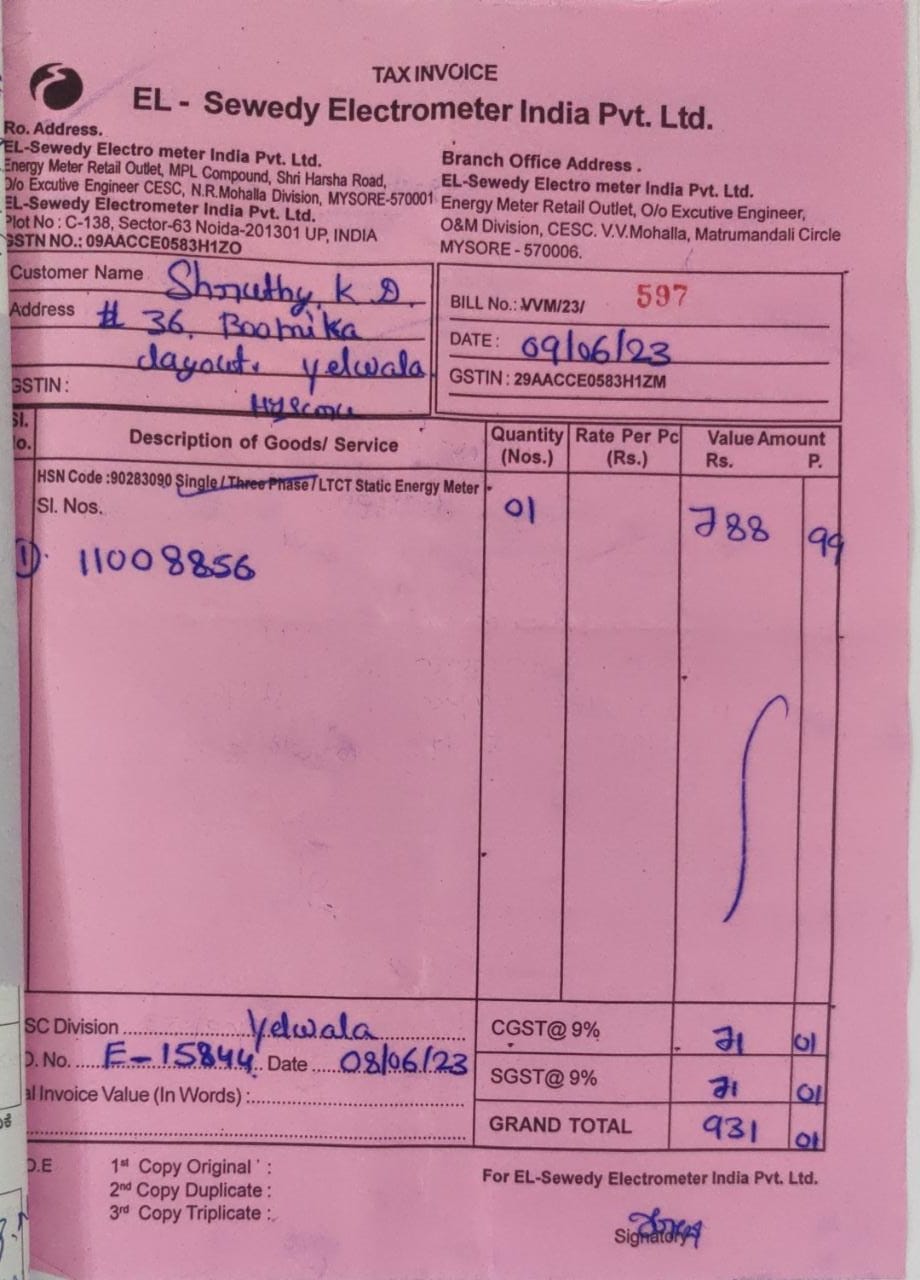 TAX INVOICE
EL - Sewedy Electrometer India Pvt. Ltd.
Ro. Address.
EL-Sewedy Electro meter India Pvt. Ltd.
Energy Meter Retail Outlet, MPL Compound, Shri Harsha Road,
O/o Excutive Engineer CESC, N.R.Mohalla Division, MYSORE-570001
EL-Sewedy Electrometer India Pvt. Ltd.
Plot No : C-138, Sector-63 Noida-201301 UP, INDIA
GSTN NO.: 09AACCE0583H1ZO
Branch Office Address .
EL-Sewedy Electro meter India Pvt. Ltd.
Energy Meter Retail Outlet, O/o Excutive Engineer,
O&M Division, CESC. V.V.Mohalla, Matrumandali Circle
MYSORE - 570006.
Customer Name Shruthy K D.
Address # 36, Boomika
Layout. Yelwala
GSTIN :
BILL No.: VVM/23/ 597
DATE : 09/06/23
GSTIN : 29AACCE0583H1ZM
Sl. No. Description of Goods/ Service Quantity (Nos.) Rate Per Pc (Rs.) Value Amount Rs. P.
HSN Code :90283090 Single / Three Phase / LTCT Static Energy Meter
Sl. Nos. 01 788 99
1). 11008856
SC Division Yelwala CGST@ 9% 71 01
O. No. E-15844 Date 08/06/23
SGST@ 9% 71 01
al Invoice Value (In Words) :
GRAND TOTAL 931 01
O.E 1st Copy Original :
2nd Copy Duplicate :
3rd Copy Triplicate :
For EL-Sewedy Electrometer India Pvt. Ltd.
Signatory